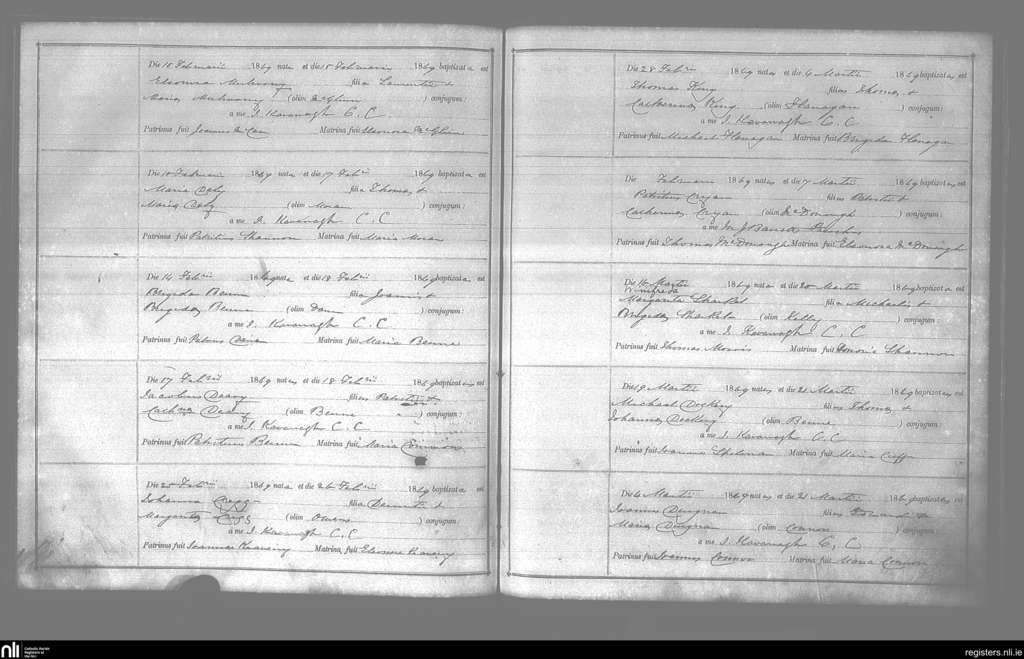 Die 15 Februarii 1869 nata et die 15 Februarii 1869 baptizata est
Eleonora Mulvany filia Laurentii &
Maria Mulvany (olim McGlinn) conjugum:
a me J. Kavanagh C. C.
Patrinus fuit Joannes Matrina fuit Eleonora McGlinn
Die 10 Februarii 1869 nata et die 17 Febrii 1869 baptizata est
Maria filia Thomas &
Maria (olim Moran) conjugum:
a me J. Kavanagh C. C
Patrinus fuit Patritius Shannon Matrina fuit Maria Moran
Die 14 Febrii 1869 nata et die 18 Febrii 1869 baptizata est
Brigida Beirne filia Joannis &
Brigida Beirne (olim) conjugum:
a me J. Kavanagh C. C
Patrinus fuit Matrina fuit Maria Beirne
Die 17 Febrii 1869 natus et die 18 Febrii 1869 baptizatus est
Jacobus filius Patritii &
Cathna (olim Beirne) conjugum:
a me J. Kavanagh C. C
Patrinus fuit Patritius Beirne Matrina fuit Maria
Die 25 Febrii 1869 nata et die 26 Febrii 1869 baptizata est
Johanna Cregg filia &
Margarita Cregg (olim Owens) conjugum:
a me J. Kavanagh C. C
Patrinus fuit Joannes Matrina fuit Eleonora
Die 28 Febrii 1869 natus et die 6 Martii 1869 baptizatus est
Thomas King filius Thomas &
Catherina King (olim Flanagan) conjugum:
a me J. Kavanagh C. C
Patrinus fuit Michael Flanagan Matrina fuit Brigida Flanagan
Die Februarii 1869 natus et die 7 Martii 1869 baptizatus est
Patritius Cryan filius Patritii &
Catherina Cryan (olim McDonough) conjugum:
a me
Patrinus fuit Thomas McDonough Matrina fuit Eleonora McDonough
Die 10 Martii 1869 nata et die 20 Martii 1869 baptizata est
Winifreda
Margarita filia Michaelis &
Brigida (olim Kelly) conjugum:
a me J. Kavanagh C. C
Patrinus fuit Thomas Morris Matrina fuit Honoria Shannon
Die 19 Martii 1869 natus et die 21 Martii 1869 baptizatus est
Michael Dockery filius Thomas &
Johanna Dockery (olim Beirne) conjugum:
a me J. Kavanagh C. C
Patrinus fuit Joannes Matrina fuit Maria Cuff
Die 6 Martii 1869 natus et die 21 Martii 1869 baptizatus est
Joannes Deignan filius Edwardi &
Maria Deignan (olim Connor) conjugum:
a me J. Kavanagh C. C
Patrinus fuit Joannes Connor Matrina fuit Maria Connor
nli Catholic Parish
Registers at
the NLI
registers.nli.ie